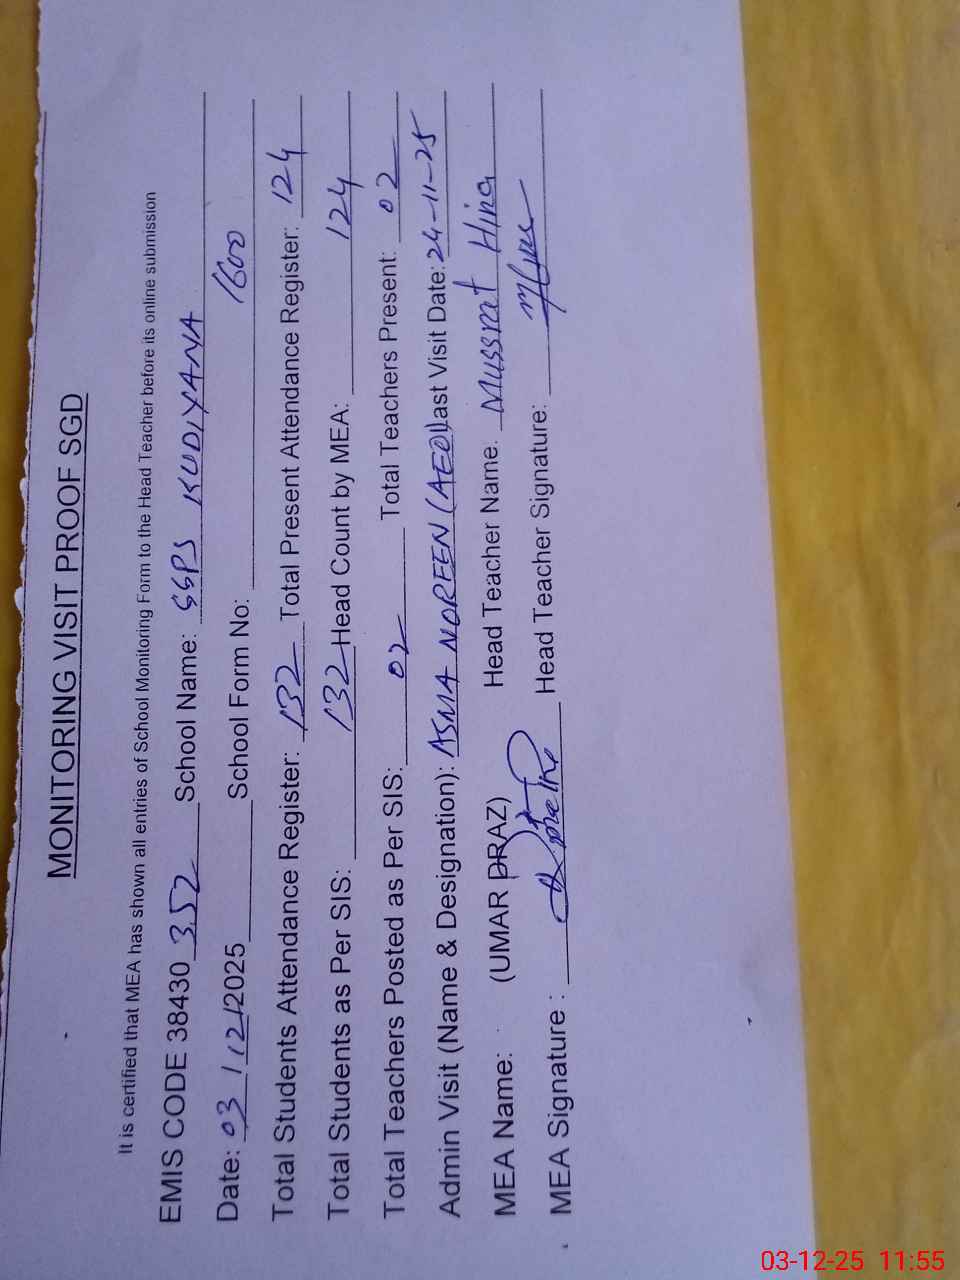 MONITORING VISIT PROOF SGD
It is certified that MEA has shown all entries of School Monitoring Form to the Head Teacher before its online submission
EMIS CODE 38430 352 School Name: GGPS KUDIYANA
Date: 03/12/2025 School Form No: 1600
Total Students Attendance Register: 132 Total Present Attendance Register: 124
Total Students as Per SIS: 132 Head Count by MEA: 124
Total Teachers Posted as Per SIS: 02 Total Teachers Present: 02
Admin Visit (Name & Designation): ASMA NOREEN (AEO) Last Visit Date: 24-11-25
MEA Name: (UMAR DRAZ) Head Teacher Name. Mussrat Hina
MEA Signature : Head Teacher Signature:
03-12-25 11:55